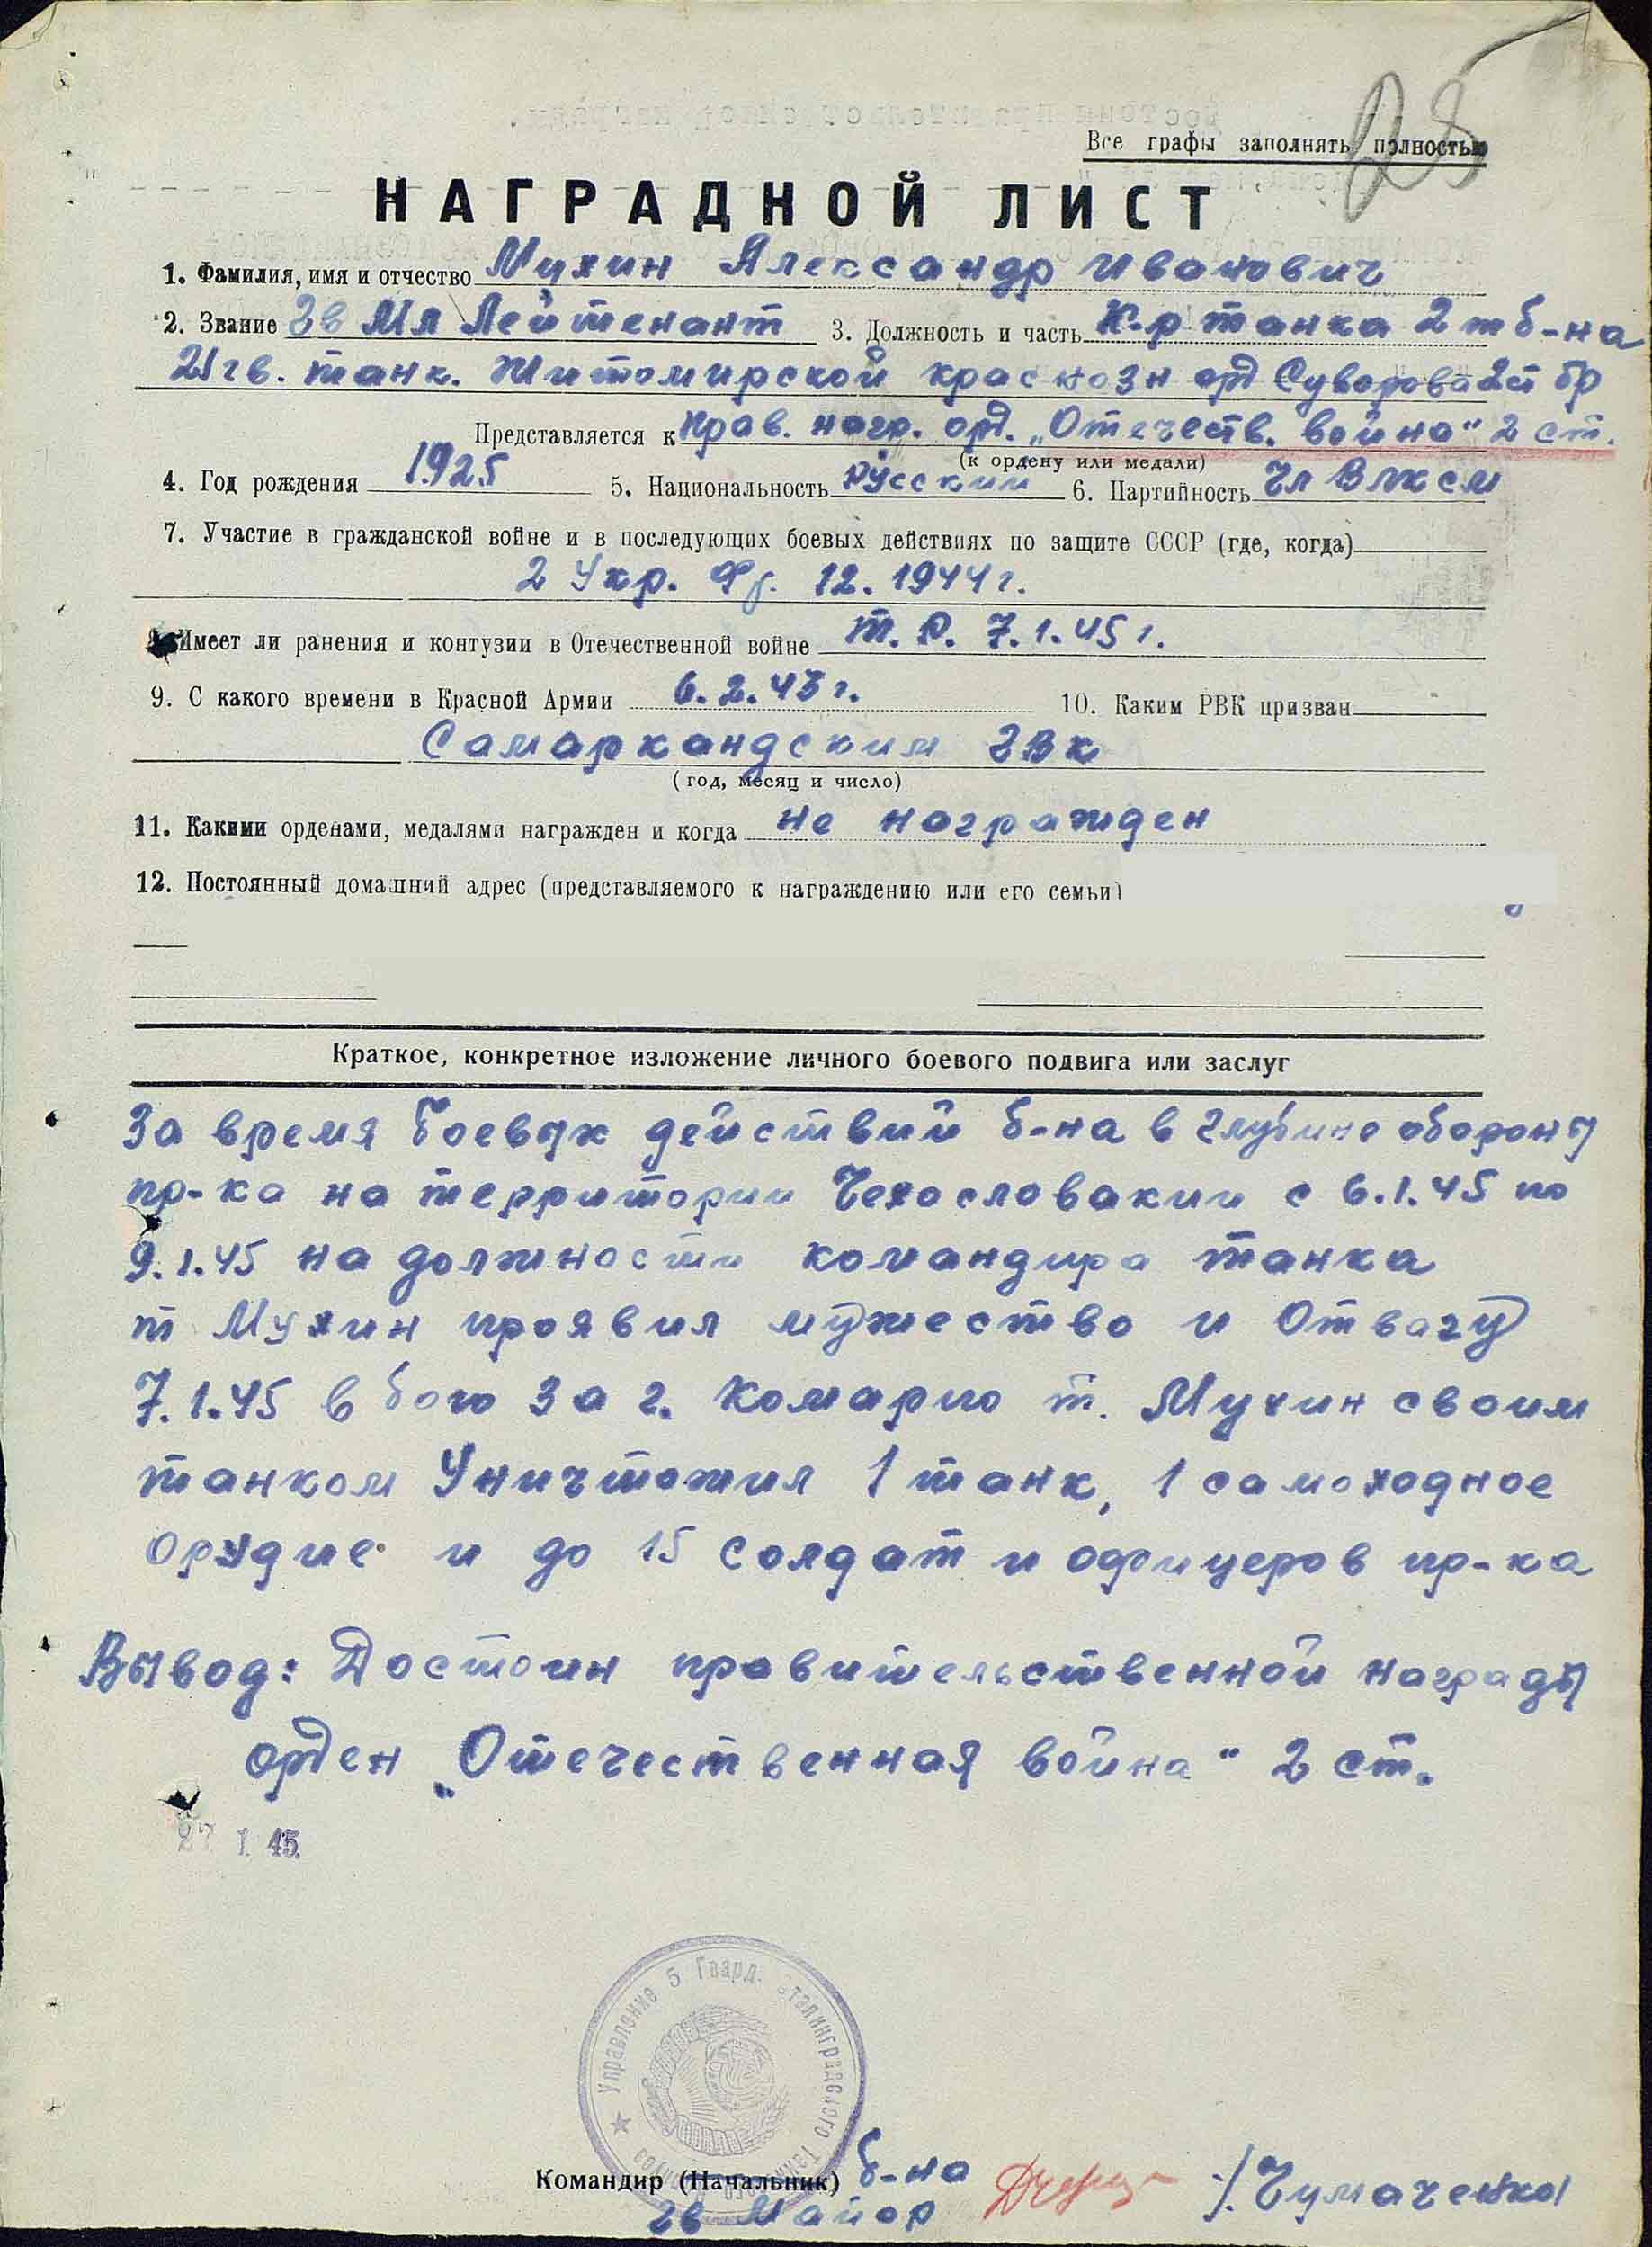 Все графы заполнять полностью
28
НАГРАДНОЙ ЛИСТ
1. Фамилия, имя и отчество Мухин Александр Иванович
2. Звание Гв Мл Лейтенант 3. Должность и часть К-р танка 2 т б-на
21 гв. танк. Житомирской краснозн орд Суворова 2 ст бр
Представляется к прав. нагр. орд. „Отечеств. война" 2 ст.
(к ордену или медали)
4. Год рождения 1925 5. Национальность русский 6. Партийность Чл Влксм
7. Участие в гражданской войне и в последующих боевых действиях по защите СССР (где, когда)
2 Укр. Фр. 12. 1944 г.
Имеет ли ранения и контузии в Отечественной войне т. р. 7.1.45 г.
9. С какого времени в Красной Армии 6.2.43 г. 10. Каким РВК призван
Самаркандским ГВК
(год, месяц и число)
11. Какими орденами, медалями награжден и когда не награжден
12. Постоянный домашний адрес (представляемого к награждению или его семьи)
Краткое, конкретное изложение личного боевого подвига или заслуг
За время боевых действий б-на в глубине обороны
пр-ка на территории Чехословакии с 6.1.45 по
9.1.45 на должности командира танка
т Мухин проявил мужество и Отвагу
7.1.45 в бою за г. Комарно т. Мухин своим
танком Уничтожил 1 танк, 1 самоходное
орудие и до 15 солдат и офицеров пр-ка
Вывод: Достоин правительственной награды
орден „Отечественная война" 2 ст.
27 1 45.
Управление 5 Гвард. Сталинградского
Командир (Начальник) б-на
Гв Майор /Чумаченко/